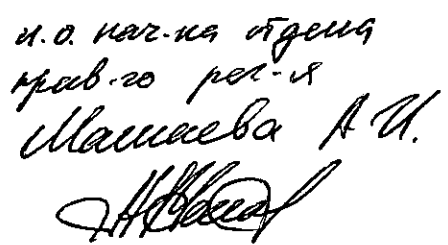 и.о. нач-ка отдела
прав-го рег-я
Машаева А И.